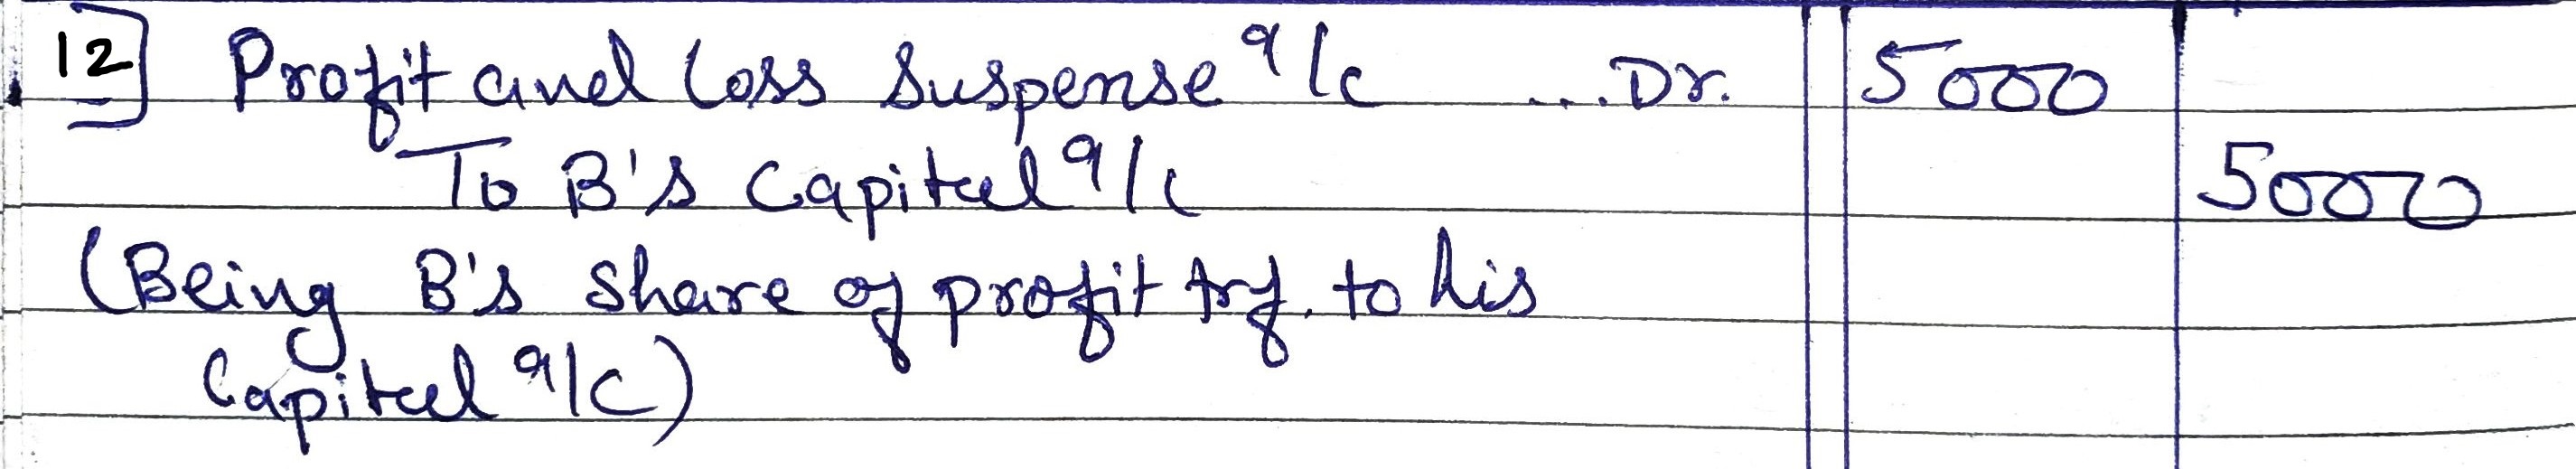 12] Profit and Loss Suspense a/c ...Dr. 5000
To B's Capital a/c 5000
(Being B's share of profit trf. to his
Capital a/c)